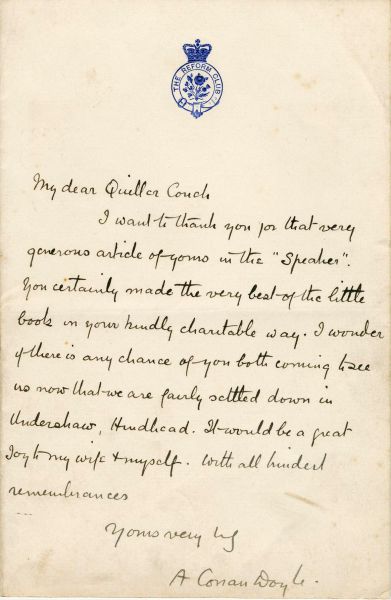 THE REFORM CLUB
My dear Quiller Couch
I want to thank you for that very
generous article of yours in the "Speaker".
You certainly made the very best of the little
book in your kindly charitable way. I wonder
if there is any chance of you both coming to see
us now that we are fairly settled down in
Undershaw, Hindhead. It would be a great
Joy to my wife & myself. With all kindest
remembrances
Yours very truly
A Conan Doyle.